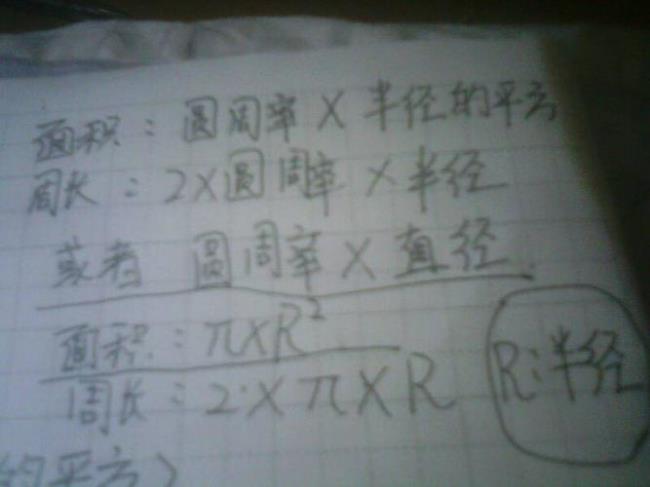 面积：圆周率×半径的平方
周长：2×圆周率×半径
或者 圆周率×直径
面积：π×R²
周长：2×π×R
R：半径
的平方）